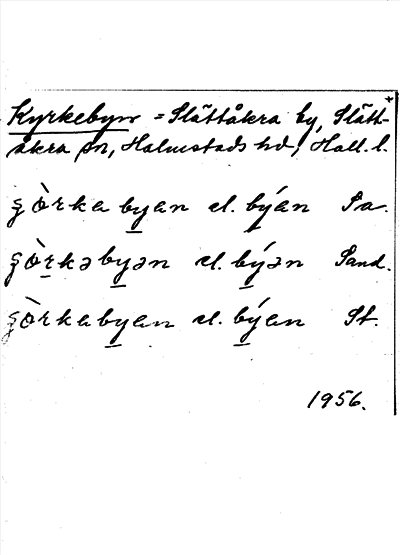 Kyrkebyn = Slättåkra by, Slätt-
åkra sn, Halmstads hd, Hall. l.
şòrkabyan el. býan Pa.
şòrkəbyən el. býən Sand.
şòrkabyan el. býan St.
1956.